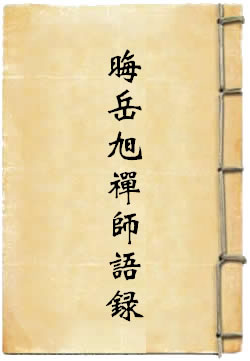 晦岳旭禪師語録